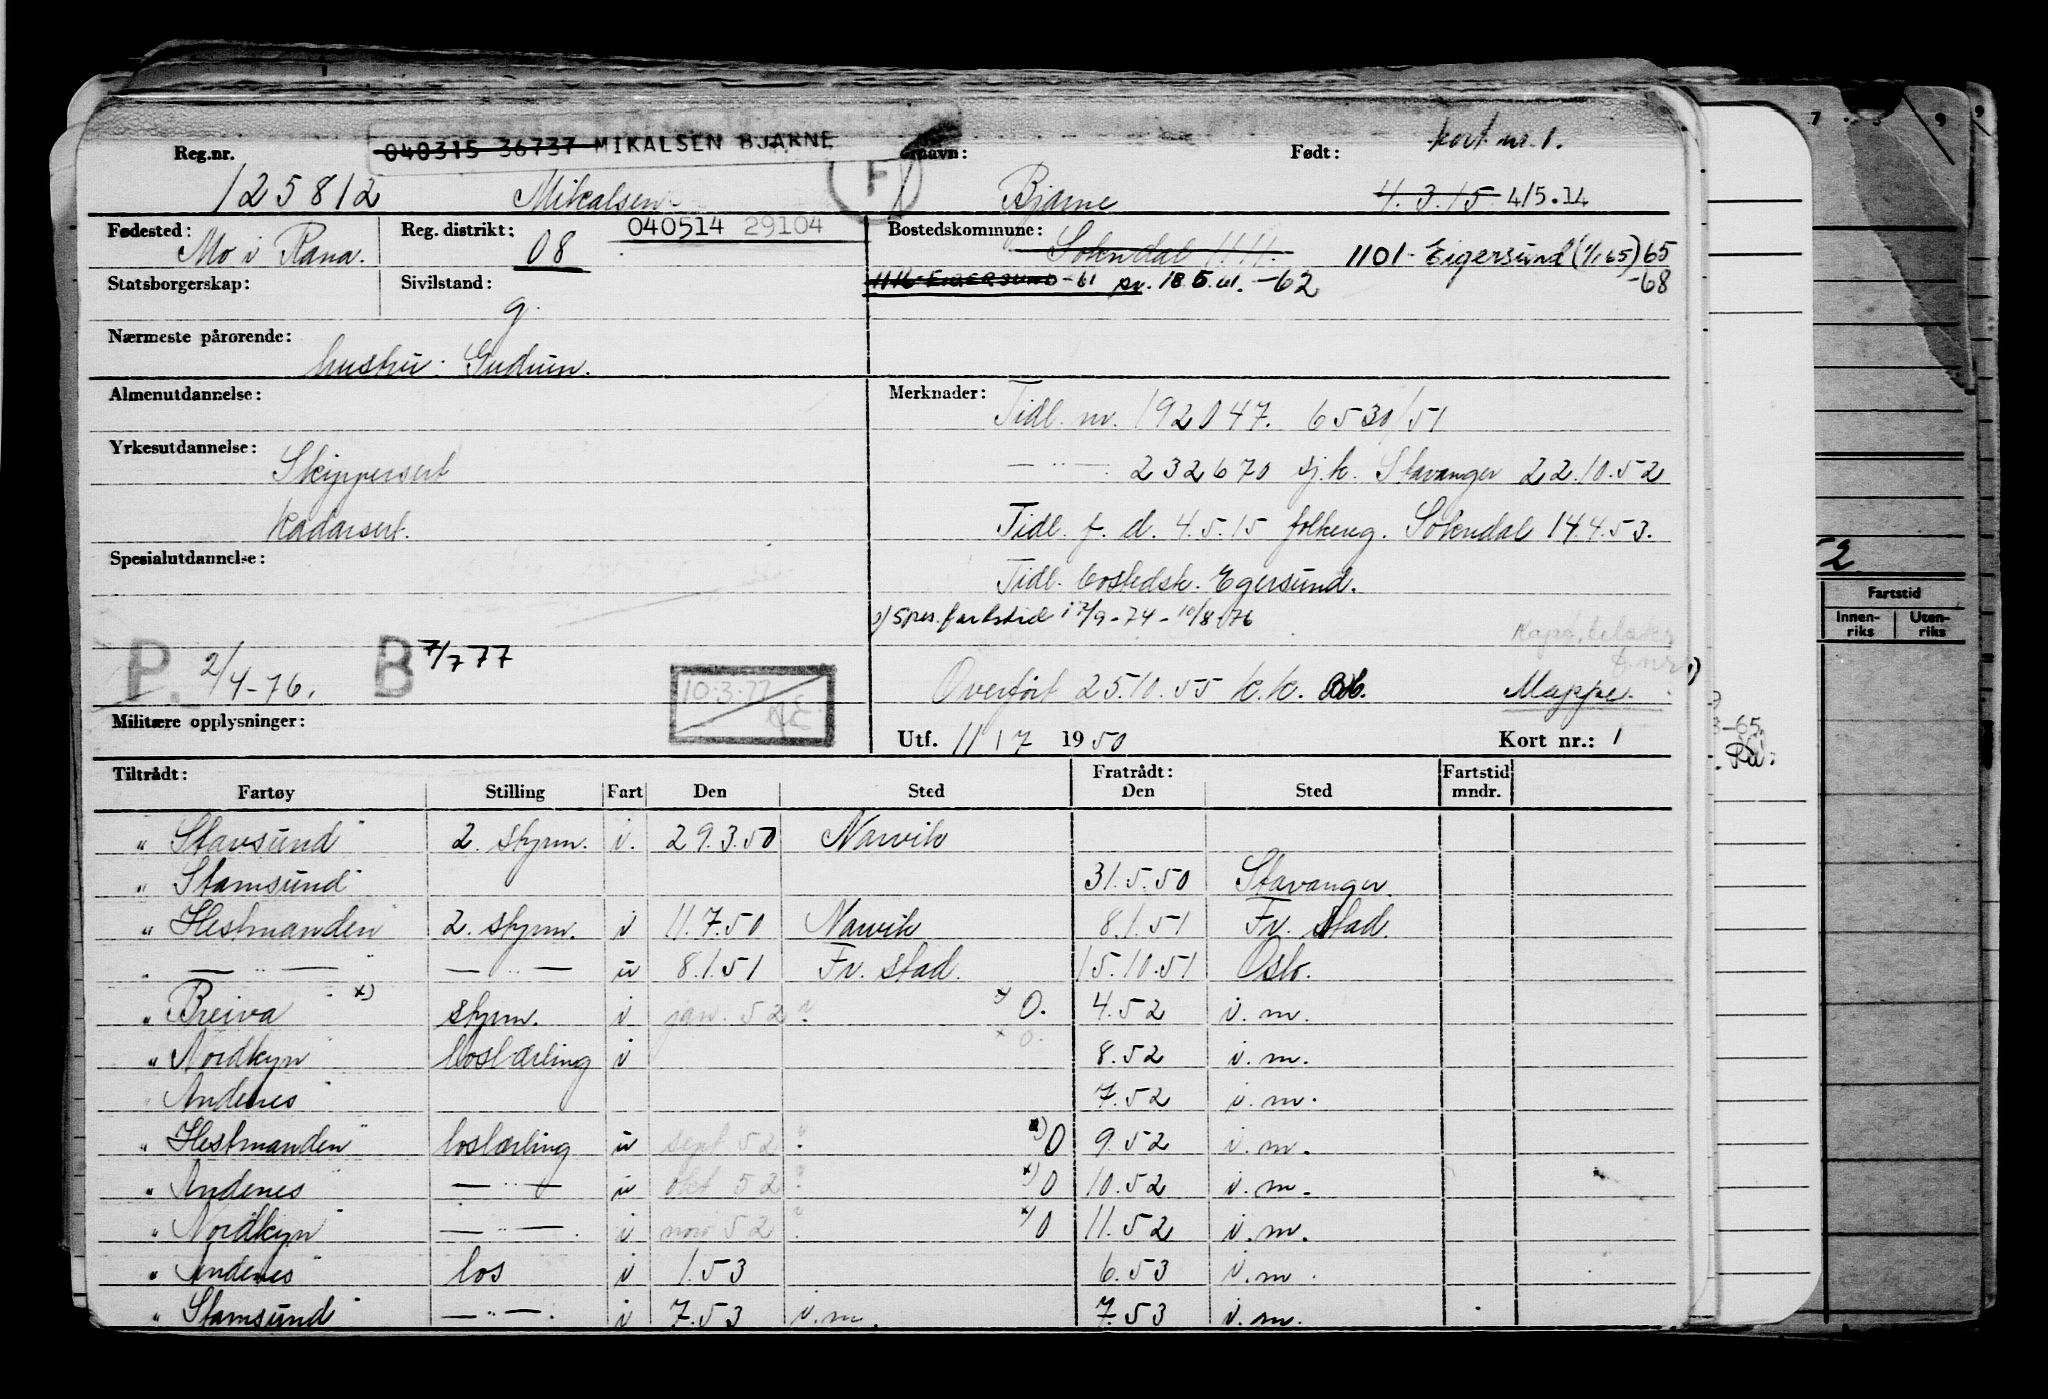 kort nr. 1.
040315 36737 MIKALSEN BJARNE
Reg.nr. Fornavn: Født:
125812 Mikalsen F Bjarne 4.3.15 4/5.14
Fødested: Reg. distrikt: 040514 29104 Bostedskommune:
Mo i Rana. 08 Sokndal 1111. 1101 - Eigersund (1/1 65) 65
Statsborgerskap: Sivilstand: 1116 EIGERSUND -61 pr. 18.5.61. -62 -68
g.
Nærmeste pårørende:
hustru: Gudrun.
Almenutdannelse: Merknader:
Tidl. nr. 192047. 6530/51
Yrkesutdannelse:
Skippersert — " — 232670 sj.k. Stavanger 22.10.52
Radarsert. Tidl. f. d. 4.5.15 folkereg. Sokndal 14.4.53.
Spesialutdannelse:
Tidl. bostedsk. Egersund.
Spes. fartstid 17/9-74 - 10/8 76
P. 2/4-76. B 7/7 77 10.3.77
Overført 25.10.55 k.k. Mappe.
Militære opplysninger:
Utf. 11/7 1950 Kort nr.: 1
Tiltrådt: Fratrådt: Fartstid
Fartøy Stilling Fart Den Sted Den Sted mndr.
" Stavsund" 2. styrm. i. 29.3.50 Narvik
" Stamsund" 31.5.50 Stavanger.
" Hestmanden" 2. styrm. i 11.7.50 Narvik 8.1.51 Fr. stad.
" — " — — " — u 8.1.51 Fr. stad. 15.10.51 Oslo.
" Breiva x) styrm. i jan. 52 ? x) O. 4.52 i. m.
" Nordkyn" loslærling i x O. 8.52 i. m.
" Andenes" 7.52 i. m.
" Hestmanden" loslærling u sept 52 ? x) O 9.52 i. m.
" Andenes" — " — u okt 52 ? x) O 10.52 i. m.
" Nordkyn" — " — i nov 52 ? x) O 11.52 i. m.
" Andenes" los i 1.53 6.53 i. m.
" Stamsund" — " — i 7.53 i. m. 7.53 i. m.
Fartstid
Innenriks Utenriks